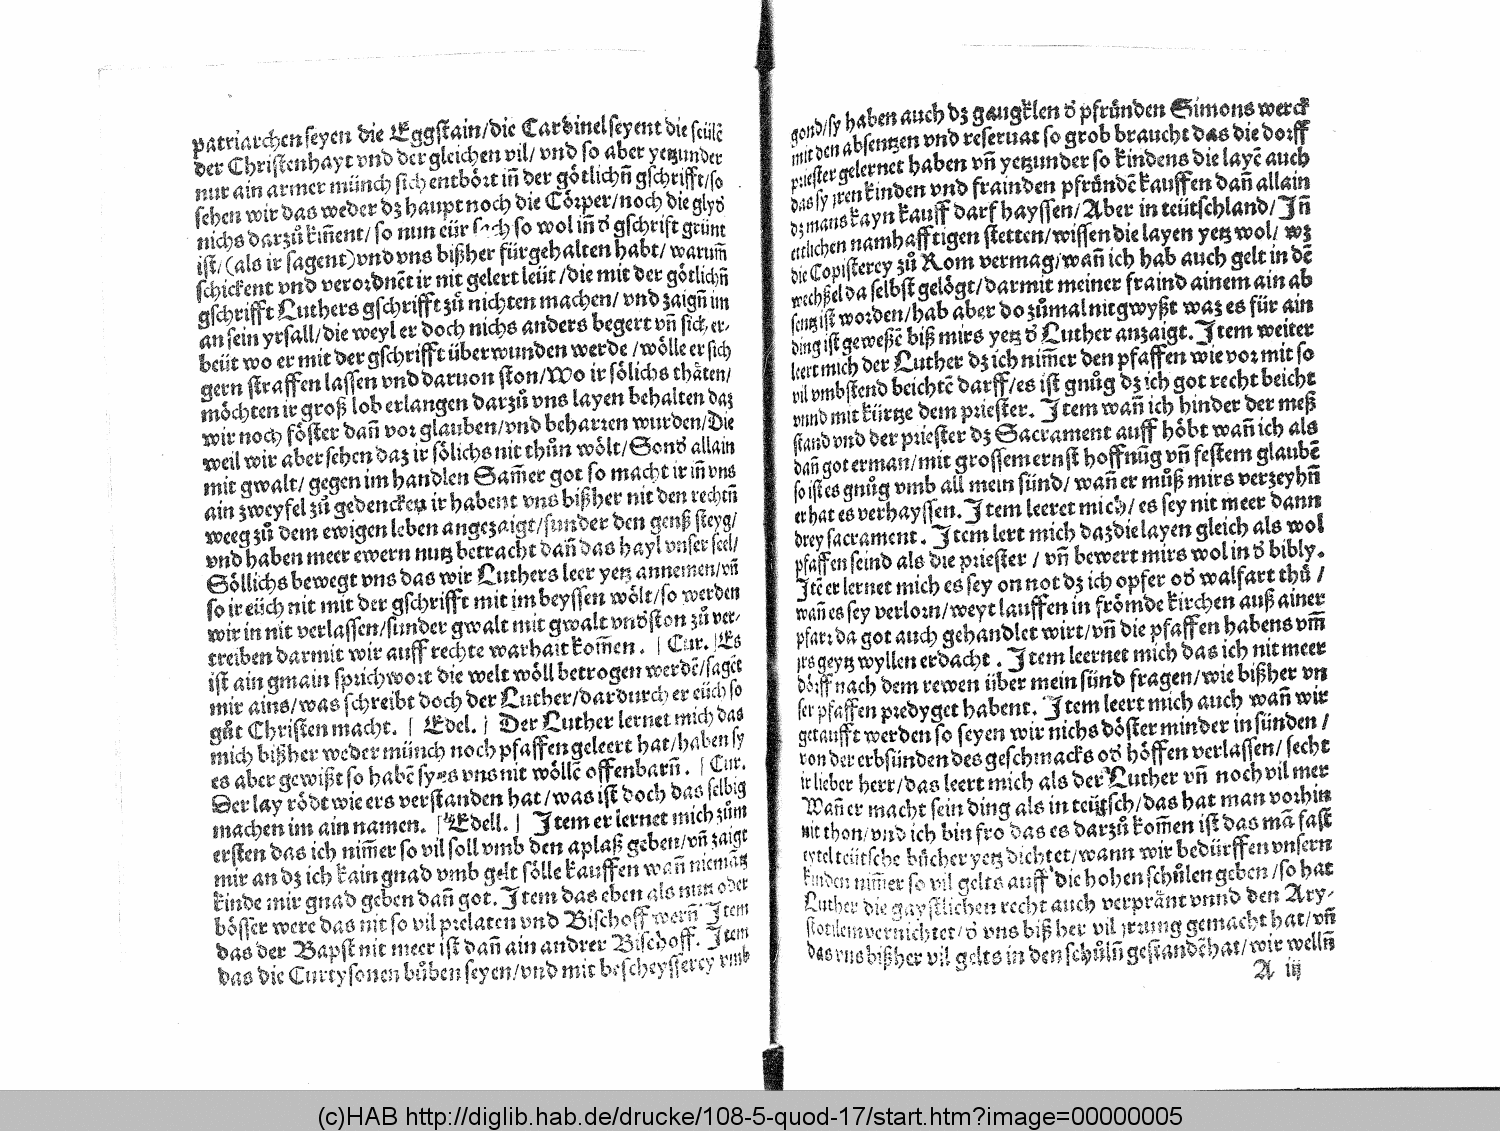 patriarchen seyen die Eggstain/die Cardinel seyent die seülē
der Christenhayt vnd der gleichen vil/ vnd so aber yetzunder
nur ain armer münch sich entbört iñ der götlichñ gschrifft/so
sehen wir das weder dz haupt noch die Cörper/noch die glyd̕
nichs darzů kiñent/ so nun eür so wol iñ d̕ gschrift grünt
ist/(als ir sagent)vnd vns bißher fürgehalten habt/ warum̃
schickent vnd verordnēt ir nit gelert leüt/die mit der götlichñ
gschrifft Luthers gschrifft zů nichten machen/ vnd zaigñ im
an sein yrsall/die weyl er doch nichs anders begert vñ sich er-
beüt wo er mit der gschrifft überwunden werde/wölle er sich
gern straffen lassen vnd daruon ston/Wo ir sölichs thäten/
möchten ir groß lob erlangen darzů vns layen behalten daz
wir noch föster dañ vor glauben/vnd beharren wurden/Die
weil wir aber sehen daz ir sölichs nit thůn wölt/Sond̕ allain
mit gwalt/ gegen im handlen Sam̃er got so macht ir iñ vns
ain zweyfel zů gedencken ir habent vns bißher nit den rechtñ
weeg zů dem ewigen leben angezaigt/sunder den genß steyg/
vnd haben meer ewern nutz betracht dañ das hayl vnser seel/
Söllichs bewegt vns das wir Luthers leer yetz annemen/vñ
so ir eüch nit mit der gschrifft mit im beyssen wölt/so werden
wir in nit verlassen/sunder gwalt mit gwalt vnd̕ston zů ver-
treiben darmit wir auff rechte warhait kom̃en. | Cur. | Es
ist ain gmain sprichwort die welt wöll betrogen werdē/sagēt
mir ains/was schreibt doch der Luther/dardurch er eüch so
gůt Christen macht. | Edel. | Der Luther lernet mich das
mich bißher weder münch noch pfaffen geleert hat/haben sy
es aber gewißt so habē sy es vns nit wöllē offenbarñ. | Cur.
Der lay rödt wie ers verstanden hat/was ist doch das selbig
machen im ain namen. | Edell. | Item er lernet mich zům
ersten das ich nim̃er so vil soll vmb den aplaß geben/vñ zaigt
mir an dz ich kain gnad vmb gelt sölle kauffen wañ niemāts
kinde mir gnad geben dañ got. Item das eben als nutz oder
bösser were das nit so vil prelaten vnd Bischoff werñ Item
das der Bapst nit meer ist dañ ain andrer Bischoff. Item
das die Curtysonen bůben seyen/vnd mit bescheysserey vmb
gond/sy haben auch dz gaugklen d̕ pfründen Simons werck
mit den absentzen vnd reseruat so grob braucht das die dorff
priester gelernet haben vñ yetzunder so kindens die layē auch
das sy jren kinden vnd frainden pfründē kauffen dañ allain
dz mans kayn kauff darf hayssen/Aber in teütschland/Jñ
ettlichen namhafftigen stetten/wissen die layen yetz wol/ wz
die Copisterey zů Rom vermag/wañ ich hab auch gelt in dē
wechßel da selbst gelögt/darmit meiner fraind ainem ain ab
sentz ist worden/hab aber do zůmal nit gwyßt waz es für ain
ding ist geweßē biß mirs yetz d̕ Luther anzaigt. Item weiter
leert mich der Luther dz ich nim̃er den pfaffen wie vor mit so
vil vmbstend beichtē darff/es ist gnůg dz ich got recht beicht
vnnd mit kürtze dem priester. Item wañ ich hinder der meß
stand vnd der priester dz Sacrament auff höbt wañ ich als
dañ got erman/mit grossem ernst hoffnũg vñ festem glaubē
so ist es gnůg vmb all mein sünd/ wañ er můß mirs verzeyhñ
er hat es verhayssen. Item leeret mich/ es sey nit meer dann
drey sacrament. Item lert mich daz die layen gleich als wol
pfaffen seind als die priester / vñ bewert mirs wol in d̕ bibly.
Itē er lernet mich es sey on not dz ich opfer od̕ walfart thů /
wañ es sey verlorn/weyt lauffen in frömde kirchen auß ainer
pfarr da got auch gehandlet wirt/vñ die pfaffen habens vm̃
jrs geytz wyllen erdacht. Item leernet mich das ich nit meer
dörff nach dem rewen über mein sünd fragen/wie bißher vn
ser pfaffen predyget habent. Item leert mich auch wañ wir
getaufft werden so seyen wir nichs döster minder in sünden /
von der erbsünden des geschmacks od̕ höffen verlassen/ secht
ir lieber herr/das leert mich als der Luther vñ noch vil mer
Wañ er macht sein ding als in teütsch/das hat man vorhin
nit thon/vnd ich bin fro das es darzů kom̃en ist das mā fast
eytel teütsche bücher yetz dichtet/wann wir bedürffen vnsern
kinden nim̃er so vil gelts auff die hohen schůlen geben/so hat
Luther die gaystlichen recht auch verpränt vnnd den Ary-
stotilem vernichtet/d̕ vns bißher vil jrrung gemacht hat/vñ
das vns bißher vil gelts in den schůlñ gestandē hat/wir wellñ
A iij
(c)HAB http://diglib.hab.de/drucke/108-5-quod-17/start.htm?image=00000005